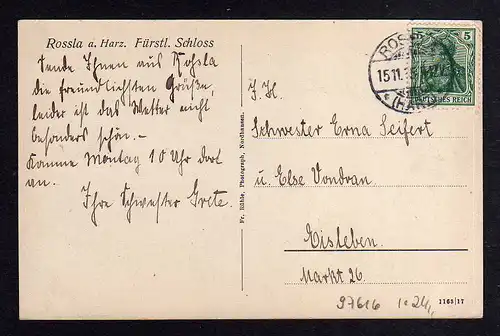 Rossla a. Harz. Fürstl. Schloss
Sende Ihnen aus Roßla
die freundlichsten Grüße,
leider ist das Wetter nicht
besonders schön. –
Komme Montag 10 Uhr dort
an.
Ihre Schwester Grete.
Fr. Rühle, Photograph, Nordhausen.
5
DEUTSCHES REICH
ROS
15.11.
(HARZ)
S. H.
Schwester Erna Seifert
u. Else Vondran
Eisleben
Markt 26.
97616
1165/17